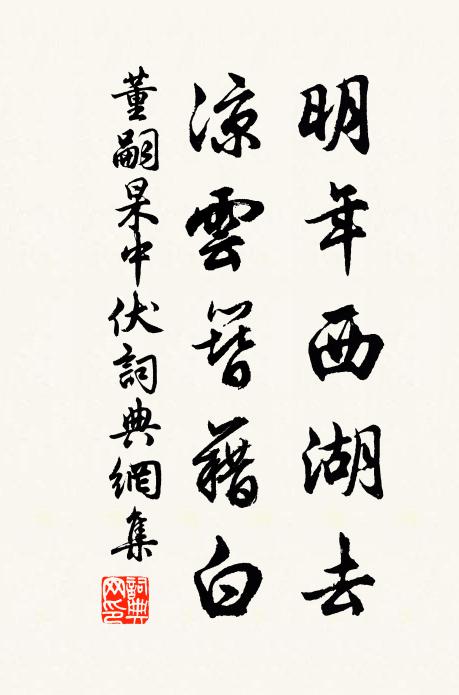 明年西湖去
涼雲簪藉白
董嗣杲中伏詞典網集
詞典网印